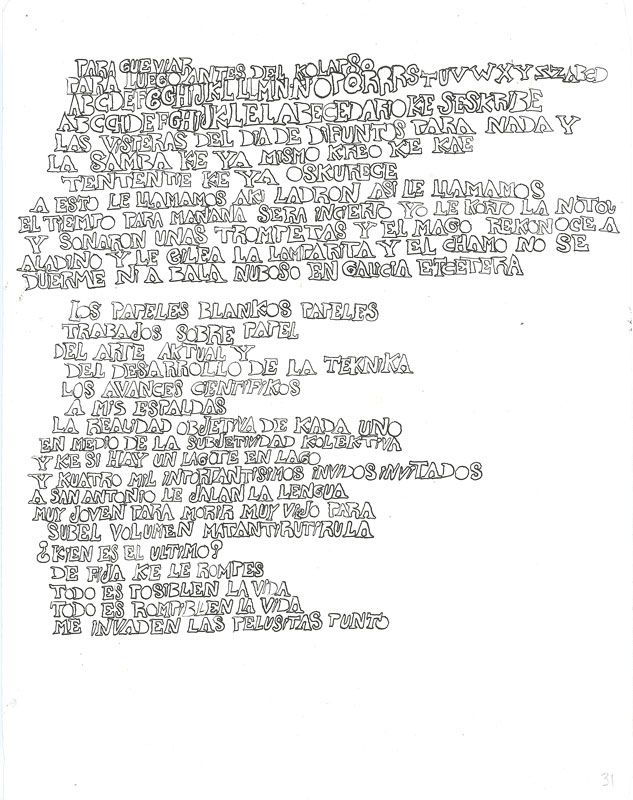 PARA GUEVIAR
PARA LUEGO ANTES DEL KOLAPSO
ABCDEFGGHIJKLLLMNÑOPQRRRSTUVWXYSZABCD
ABCCHDEFGHIJKLELABECEDARIO KE SESKRIBE
LAS VISTERAS DEL DIA DE DIFUNTOS PARA NADA Y
LA SAMBA KE YA MISMO KREO KE KAE
TENTENTIE KE YA OSKURECE
A ESTO LE LLAMAMOS AKI LADRON ASI LE LLAMAMOS
EL TIEMPO PARA MAÑANA SERA INCIERTO YO LE KORTO LA NOTOL
Y SONARON UNAS TROMPETAS Y EL MAGO REKONOCE A
ALADINO Y LE GILEA LA LAMPARITA Y EL CHAMO NO SE
DUERME NI A BALA NUBOSO EN GALICIA ETCETERA
LOS PAPELES BLANKOS PAPELES
TRABAJOS SOBRE PAPEL
DEL ARTE AKTUAL Y
DEL DESARROLLO DE LA TEKNIKA
LOS AVANCES CENTIFIKOS
A MIS ESPALDAS
LA REALIDAD OBJETIVA DE KADA UNO
EN MEDIO DE LA SUBJETIVIDAD KOLEKTIVA
Y KE SI HAY UN LAGOTE EN LAGO
Y KUATRO MIL INPORTANTISIMOS INVIDOS INVITADOS
A SAN ANTONIO LE JALAN LA LENGUA
MUY JOVEN PARA MORIR MUY VIEJO PARA
SUBEL VOLUMEN MATANTIRUTIRULA
¿KIEN ES EL ULTIMO?
DE FIJA KE LE ROMPES
TODO ES POSIBLEN LA VIDA
TODO ES ROMPIBLEN LA VIDA
ME INVADEN LAS PELUSITAS PUNTO
31